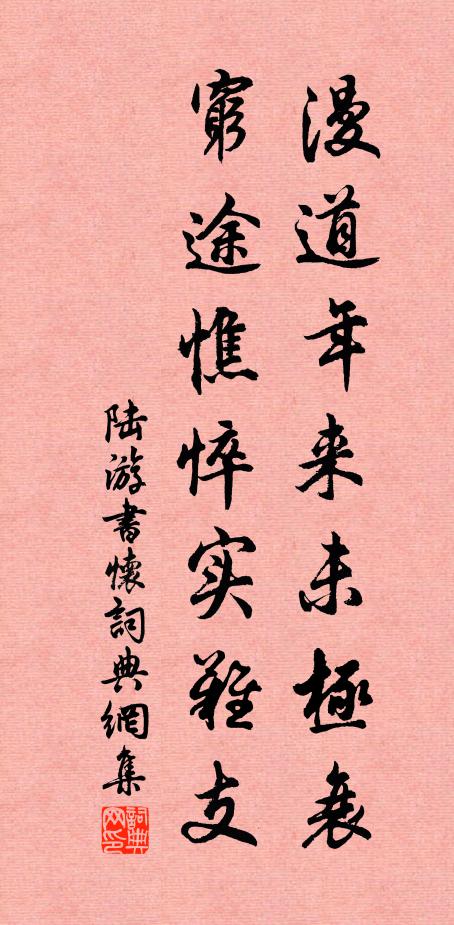 漫道年来未極衰
窮途憔悴实難支
陆游書懷詞典網集
詞典网印